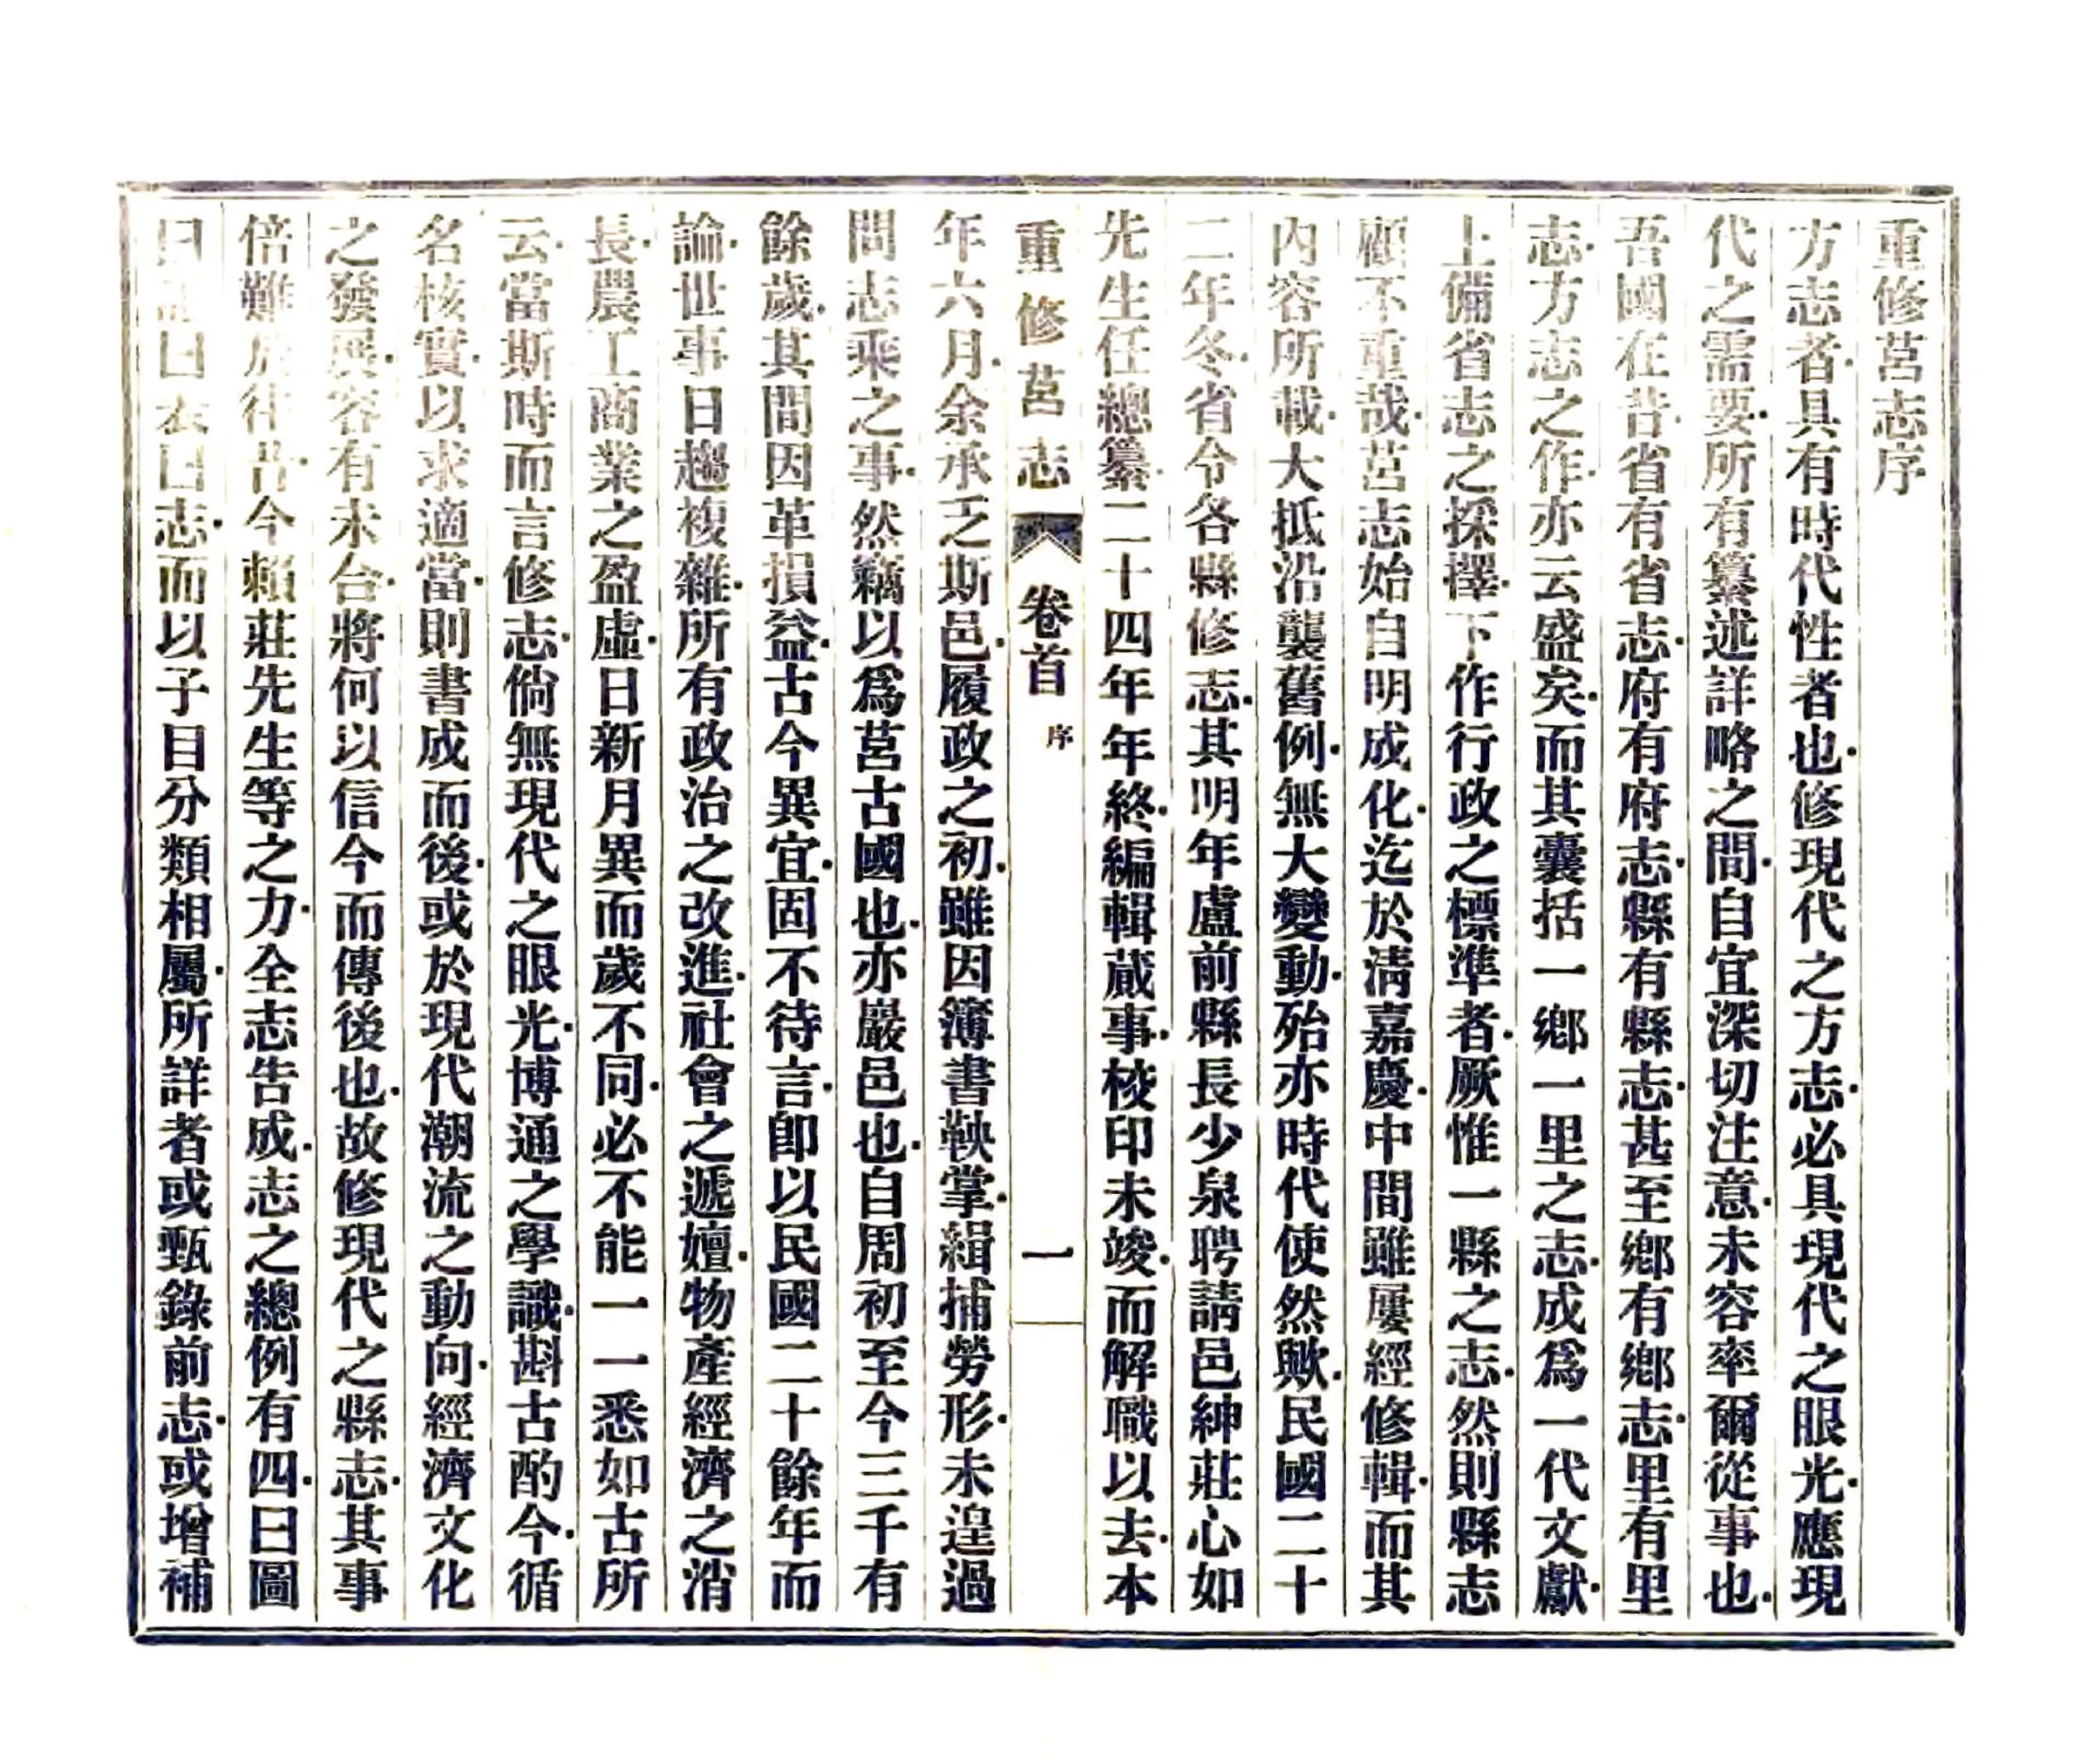 重修莒志序
方志者具有時代性者也．修現代之方志．必具現代之眼光．應現
代之需要．所有纂述詳略之間．自宜深切注意．未容率爾從事也．
吾國在昔．省有省志．府有府志．縣有縣志．甚至鄉有鄉志．里有里
志．方志之作．亦云盛矣．而其囊括一鄉一里之志．成爲一代文獻．
上備省志之採擇．下作行政之標準者．厥惟一縣之志．然則縣志
顧不重哉．莒志始自明成化．迄於淸嘉慶．中間雖屢經修輯．而其
內容所載．大抵沿襲舊例．無大變動．殆亦時代使然歟．民國二十
二年冬．省令各縣修志．其明年盧前縣長少泉聘請邑紳莊心如
先生任總纂．二十四年年終．編輯蕆事．校印未竣．而解職以去．本
重修莒志 卷首 序 一
年六月．余承乏斯邑．履政之初．雖因簿書鞅掌．緝捕勞形．未遑過
問志乘之事．然竊以爲莒古國也．亦巖邑也．自周初至今三千有
餘歲．其間因革損益．古今異宜．固不待言．卽以民國二十餘年而
論．世事日趨複雜．所有政治之改進．社會之遞嬗．物產經濟之消
長．農工商業之盈虛．日新月異而歲不同．必不能一一悉如古所
云．當斯時而言修志．倘無現代之眼光．博通之學識．斟古酌今．循
名核實．以求適當．則書成而後．或於現代潮流之動向．經濟文化
之發展．容有未合．將何以信今而傳後也．故修現代之縣志．其事
倍難於往昔．今賴莊先生等之力．全志告成．志之總例有四．曰圖
曰曰表曰志．而以子目分類相屬．所詳者或甄錄前志．或增補